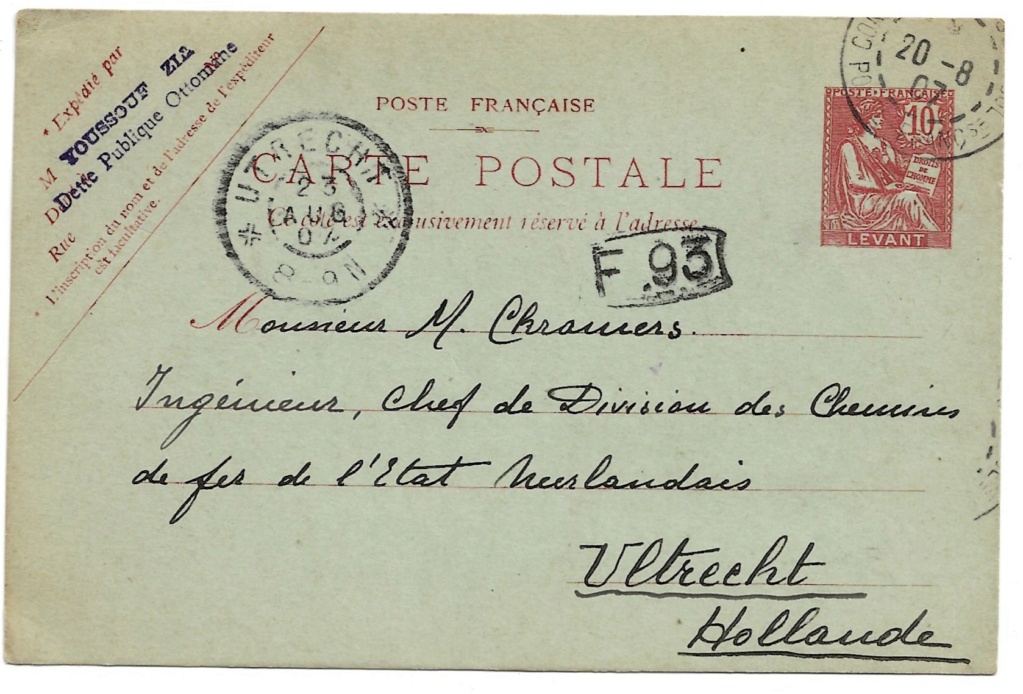 * Expédié par
M YOUSSOUF ZIA
Dette Publique Ottomane
Rue Nº
* L'inscription du nom et de l'adresse de l'expéditeur
est facultative.
POSTE FRANÇAISE
CARTE POSTALE
Ce côté est exclusivement réservé à l'adresse
* UTRECHT *
23
AUG
07
8-9N
20 -8
07
POSTE FRANÇAISE
10
DROITS
DE
L'HOMME
LEVANT
F.93
Monsieur M. Chramers.
Ingénieur, Chef de Division des Chemins
de fer de l'Etat Neerlandais
Ultrecht
Hollande